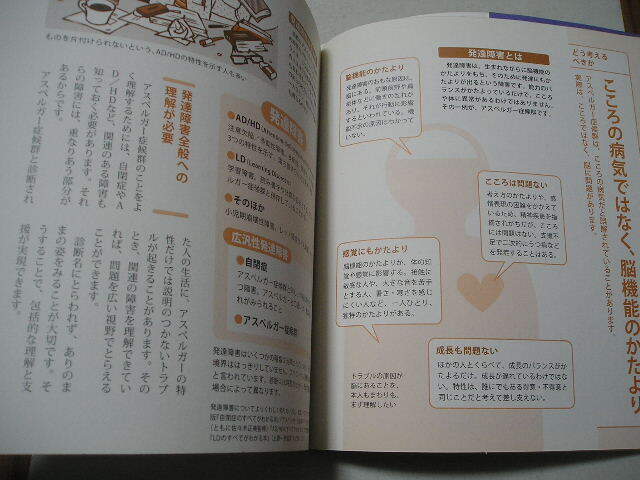 ものを片付けられないという、AD/HDの特性を示す人も多い
発達障害全般への
理解が必要
アスペルガー症候群のことをよ
く理解するためには、自閉症やA
D/HDなど、関連のある障害も
知っておく必要があります。それ
らの障害には、重なりあう部分が
あるからです。
アスペルガー症候群と診断され
た人の生活に、アスペルガーの特
性だけでは説明のつかないトラブ
ルが起きることがあります。その
とき、関連の障害を理解できてい
れば、問題を広い視野でとらえる
ことができます。
診断名にとらわれず、ありのま
まの姿をみることが大切です。そ
うすることで、包括的な理解と支
援が実現できます。
発達障害
●AD/HD
3つの特性を示す、
●LD(Learning Disorders)
学習障害。
●そのほか
小児期崩壊性障害、
広汎性発達障害
●自閉症
アスペルガー症候群
つ障害。アスペルガー
がみられること
●アスペルガー症候群
発達障害はいくつかの障害
境界ははっきりしていません。
と言われています。
場合によって異なります。
どう考える
べきか
こころの病気ではなく、脳機能のかたより
アスペルガー症候群は、こころの病気だと誤解されていることがあります。
実際は、こころではなく、脳に問題があります。
発達障害とは
発達障害は、生まれながらに脳機能の
かたよりをもち、そのために発達にもか
たよりが出るという障害です。能力のバ
ランスがかたよっているだけで、こころ
や体に異常があるわけではありません。
その一例が、アスペルガー症候群です。
脳機能のかたより
発達障害のおもな原因は、
脳にある。前頭前野や扁
桃体などに働きの乱れが
あり、それが行動に影響
するといわれている。機
能不全の原因はわかって
いない。
こころは問題ない
考え方のかたよりや、感
情表現の困難をかかえて
いるため、精神疾患を指
摘されがちだが、こころ
には問題はない。支援不
足で二次的にうつ病など
を発症することはある。
感覚にもかたより
脳機能のかたよりが、体の知
覚や感覚に影響する。接触に
敏感な人や、大きな音を苦手
とする人、暑さ・寒さを感じ
にくい人など、一人ひとり、
独特のかたよりがある。
成長も問題ない
ほかの人とくらべて、成長のバランスがか
たよるだけ。成長が遅れているわけではな
い。特性は、誰にでもある得意・不得意と
同じことだと考えて差し支えない。
トラブルの原因が
脳にあることを、
本人もまわりも、
まず理解したい